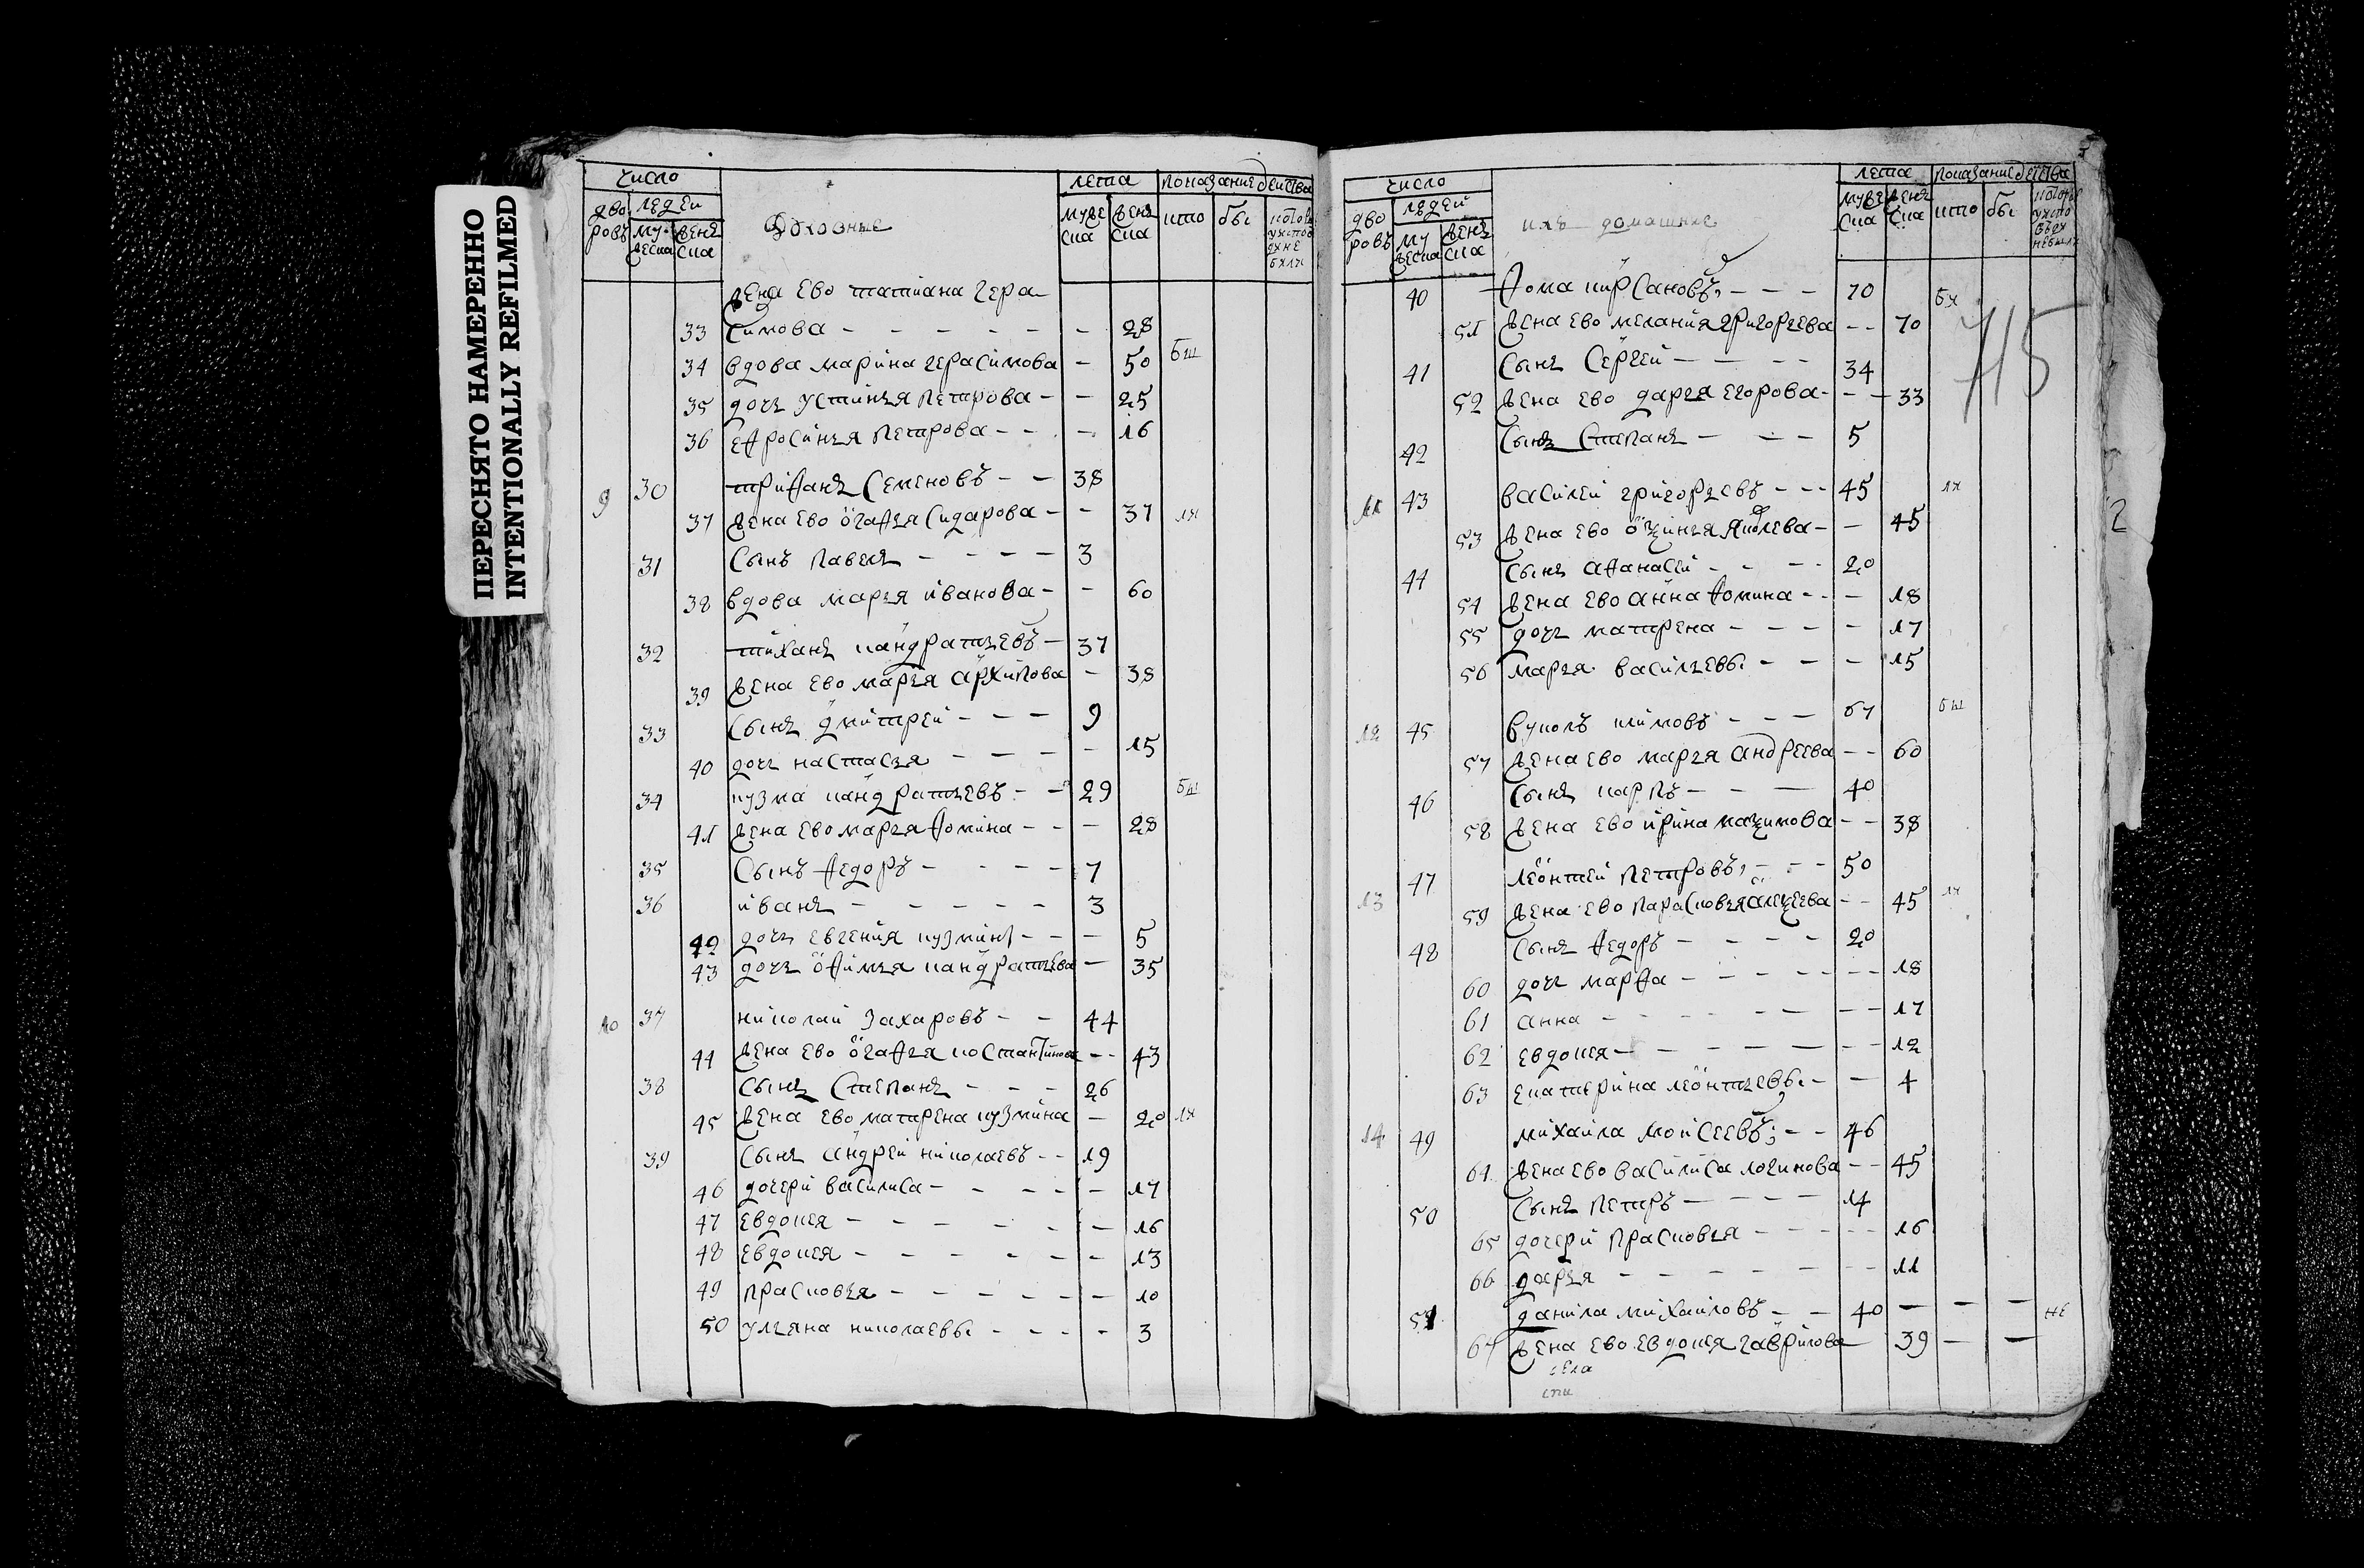 ПЕРЕСНЯТО НАМЕРЕННО
INTENTIONALLY REFILMED
число лета показание действа
дво людей муже жен кто бы
ровъ му жен ска ска
жеска ска
Духовные
жена ево татиана гера
33 симова - - - - - - 28
34 вдова марина герасимова - 50 бы
35 дочь устинья петрова - - 25
36 ефросинья петрова - - - 16
9 30 трифанъ семеновъ - - 38
37 жена ево огафья сидарова - - 37
31 сынъ павелъ - - - - 3
38 вдова марья иванова - - 60
32 тиханъ кандратьевъ - 37
39 жена ево марья архипова - 38
33 сынъ дмитреи - - - 9
40 дочь настасья - - - - - 15
34 кузма кандратьевъ - - 29 бы
41 жена ево марья фомина - - - 28
35 сынъ федоръ - - - - 7
36 иванъ - - - - - 3
42 дочь евгения кузмина - - - 5
43 дочь офимья кандратьева - 35
10 37 николаи захаровъ - - 44
44 жена ево огафья костантинова - - 43
38 сынъ степанъ - - - 26
45 жена ево матрена кузмина - 20
39 сынъ андреи николаевъ - - 19
46 дочери василиса - - - - - 17
47 евдокея - - - - - - 16
48 евдокея - - - - - - 13
49 прасковья - - - - - - 10
50 ульяна николаевы - - - - 3
число лета показание действа
дво людей муже жен кто бы
ровъ му жен ска ска
жеска ска
ихъ домашние
40 фома кирсановъ - - - 70
51 жена ево мелания григорьева - - 70
715
41 сынъ сергеи - - - - 34
52 жена ево дарья егорова - - - 33
42 сынъ степанъ - - - 5
11 43 василеи григорьевъ - - - 45
53 жена ево яковлева - - 45
44 сынъ афанасеи - - - - 20
54 жена ево анна фомина - - - 18
55 дочь матрена - - - - - 17
56 марья васильевы - - - 15
12 45 вуколъ климовъ - - - 67 бы
57 жена ево марья андреева - - 60
46 сынъ карпъ - - - 40
58 жена ево ирина макимова - - 38
13 47 леонтеи петровъ - - - 50
59 жена ево парасковья алекеева - - 45
48 сынъ федоръ - - - - 20
60 дочь марфа - - - - - - - 18
61 анна - - - - - - - - 17
62 евдокея - - - - - - - 12
63 екатерина леонтьевы - - 4
14 49 михаила моисеевъ - - 46
64 жена ево василиса логинова - - 45
50 сынъ петръ - - - - 14
65 дочери прасковья - - - - - 16
66 дарья - - - - - - - 11
51 данила михаиловъ - - 40 - - - не
67 жена ево евдокея гаврилова - 39 - -
села